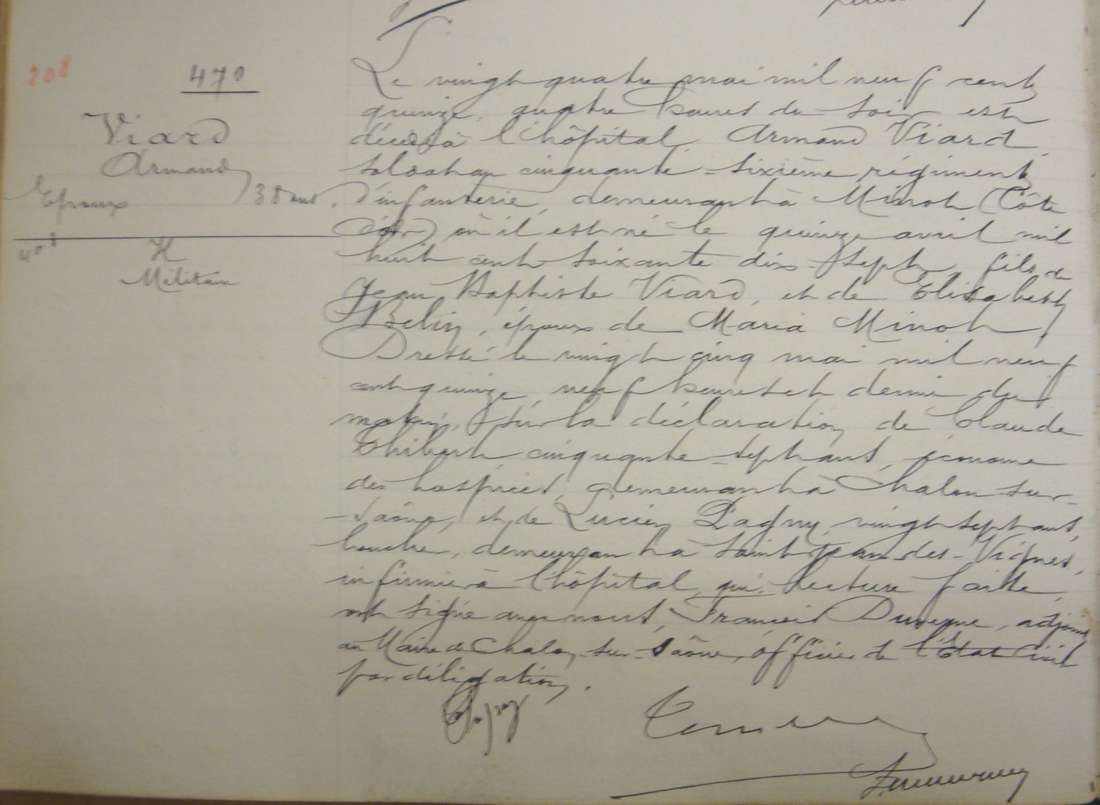 208
470
Viard
Armand
Epoux 38 ans.
H
Militaire
Le vingt quatre mai mil neuf cent
quinze, quatre heures du soir est
décédé à l'hôpital, Armand Viard,
soldat au cinquante-sixième régiment
d'infanterie, demeurant à Minot (Côte
d'or) où il est né le quinze avril mil
huit cent soixante dix-sept, fils de
Jean Baptiste Viard, et de Elisabeth
Belin, époux de Maria Minot
Dressé le vingt cinq mai mil neuf
cent quinze, neuf heures et demie du
matin, sur la déclaration de Claude
Thibert, cinquante-sept ans, économe
des hospices, demeurant à Chalon-sur-
-Saône, et de Lucien Pagny, vingt sept ans,
demeurant à Saint Jean-des-Vignes,
infirmier à l'hôpital, qui, lecture faite,
ont signé avec nous, Francis adjoint
au Maire de Chalon-sur-Saône, officier de l'Etat civil
par délégation.